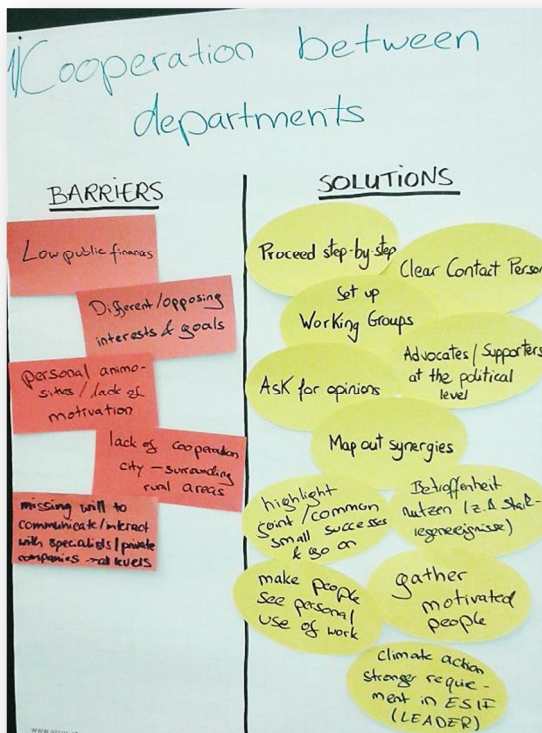 Cooperation between
departments
BARRIERS
Low public finanas
Different/opposing
interests & goals
personal animo-
sities / lack of
motivation
lack of cooperation
city – surrounding
rural areas
missing will to
communicate/interact
with specialists/private
companies → all levels
SOLUTIONS
Proceed step-by-step
Clear Contact Person
Set up
Working Groups
Advocates/Supporters
at the political
level
Ask for opinions
Map out synergies
highlight
joint/common
small successes
& go on
Betroffenheit
nutzen (z.B. Stark-
regenereignisse)
make people
see personal
use of work
gather
motivated
people
climate action
stronger require-
ment in ESIF
(LEADER)